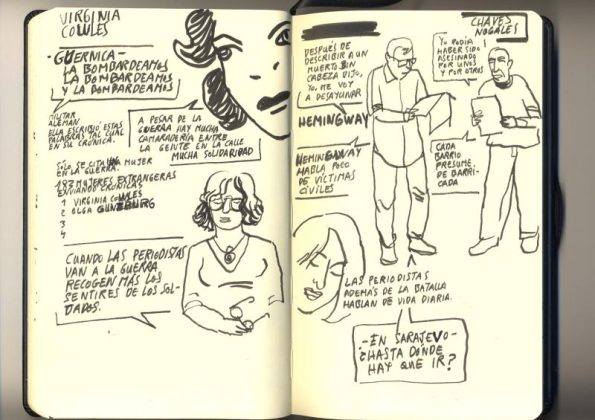 VIRGINIA
COWLES
-GUERNICA-
LA BOMBARDEAMOS
LA BOMBARDEAMOS
Y LA BOMBARDEAMOS
MILITAR
ALEMÁN
ELLA ESCRIBIÓ ESTAS
PALABRAS TAL CUAL
EN SU CRÓNICA.
A PESAR DE LA
GUERRA HAY MUCHA
CAMARADERÍA ENTRE
LA GENTE EN LA CALLE
MUCHA SOLIDARIDAD
SÓLO SE CITA UNA MUJER
EN LA GUERRA.
183 MUJERES EXTRANGERAS
ENVIANDO CRÓNICAS
1 VIRGINIA COWLES
2 OLGA GUNZBURG
3
4
CUANDO LAS PERIODISTAS
VAN A LA GUERRA
RECOGEN MÁS LOS
SENTIRES DE LOS SOL-
DADOS.
DESPUÉS DE
DESCRIBIR A UN
MUERTO SIN
CABEZA DIJO,
YO, ME VOY
A DESAYUNAR
HEMINGWAY
HEMINGWAY
HABLA POCO
DE VÍCTIMAS
CIVILES
CHAVES
NOGALES
YO PODÍA
HABER SIDO
ASESINADO
POR UNOS
Y POR OTROS
CADA
BARRIO
PRESUME
DE BARRI-
CADA
LAS PERIODISTAS
ADEMÁS DE LA BATALLA
HABLAN DE VIDA DIARIA.
-EN SARAJEVO-
¿HASTA DÓNDE
HAY QUE IR?